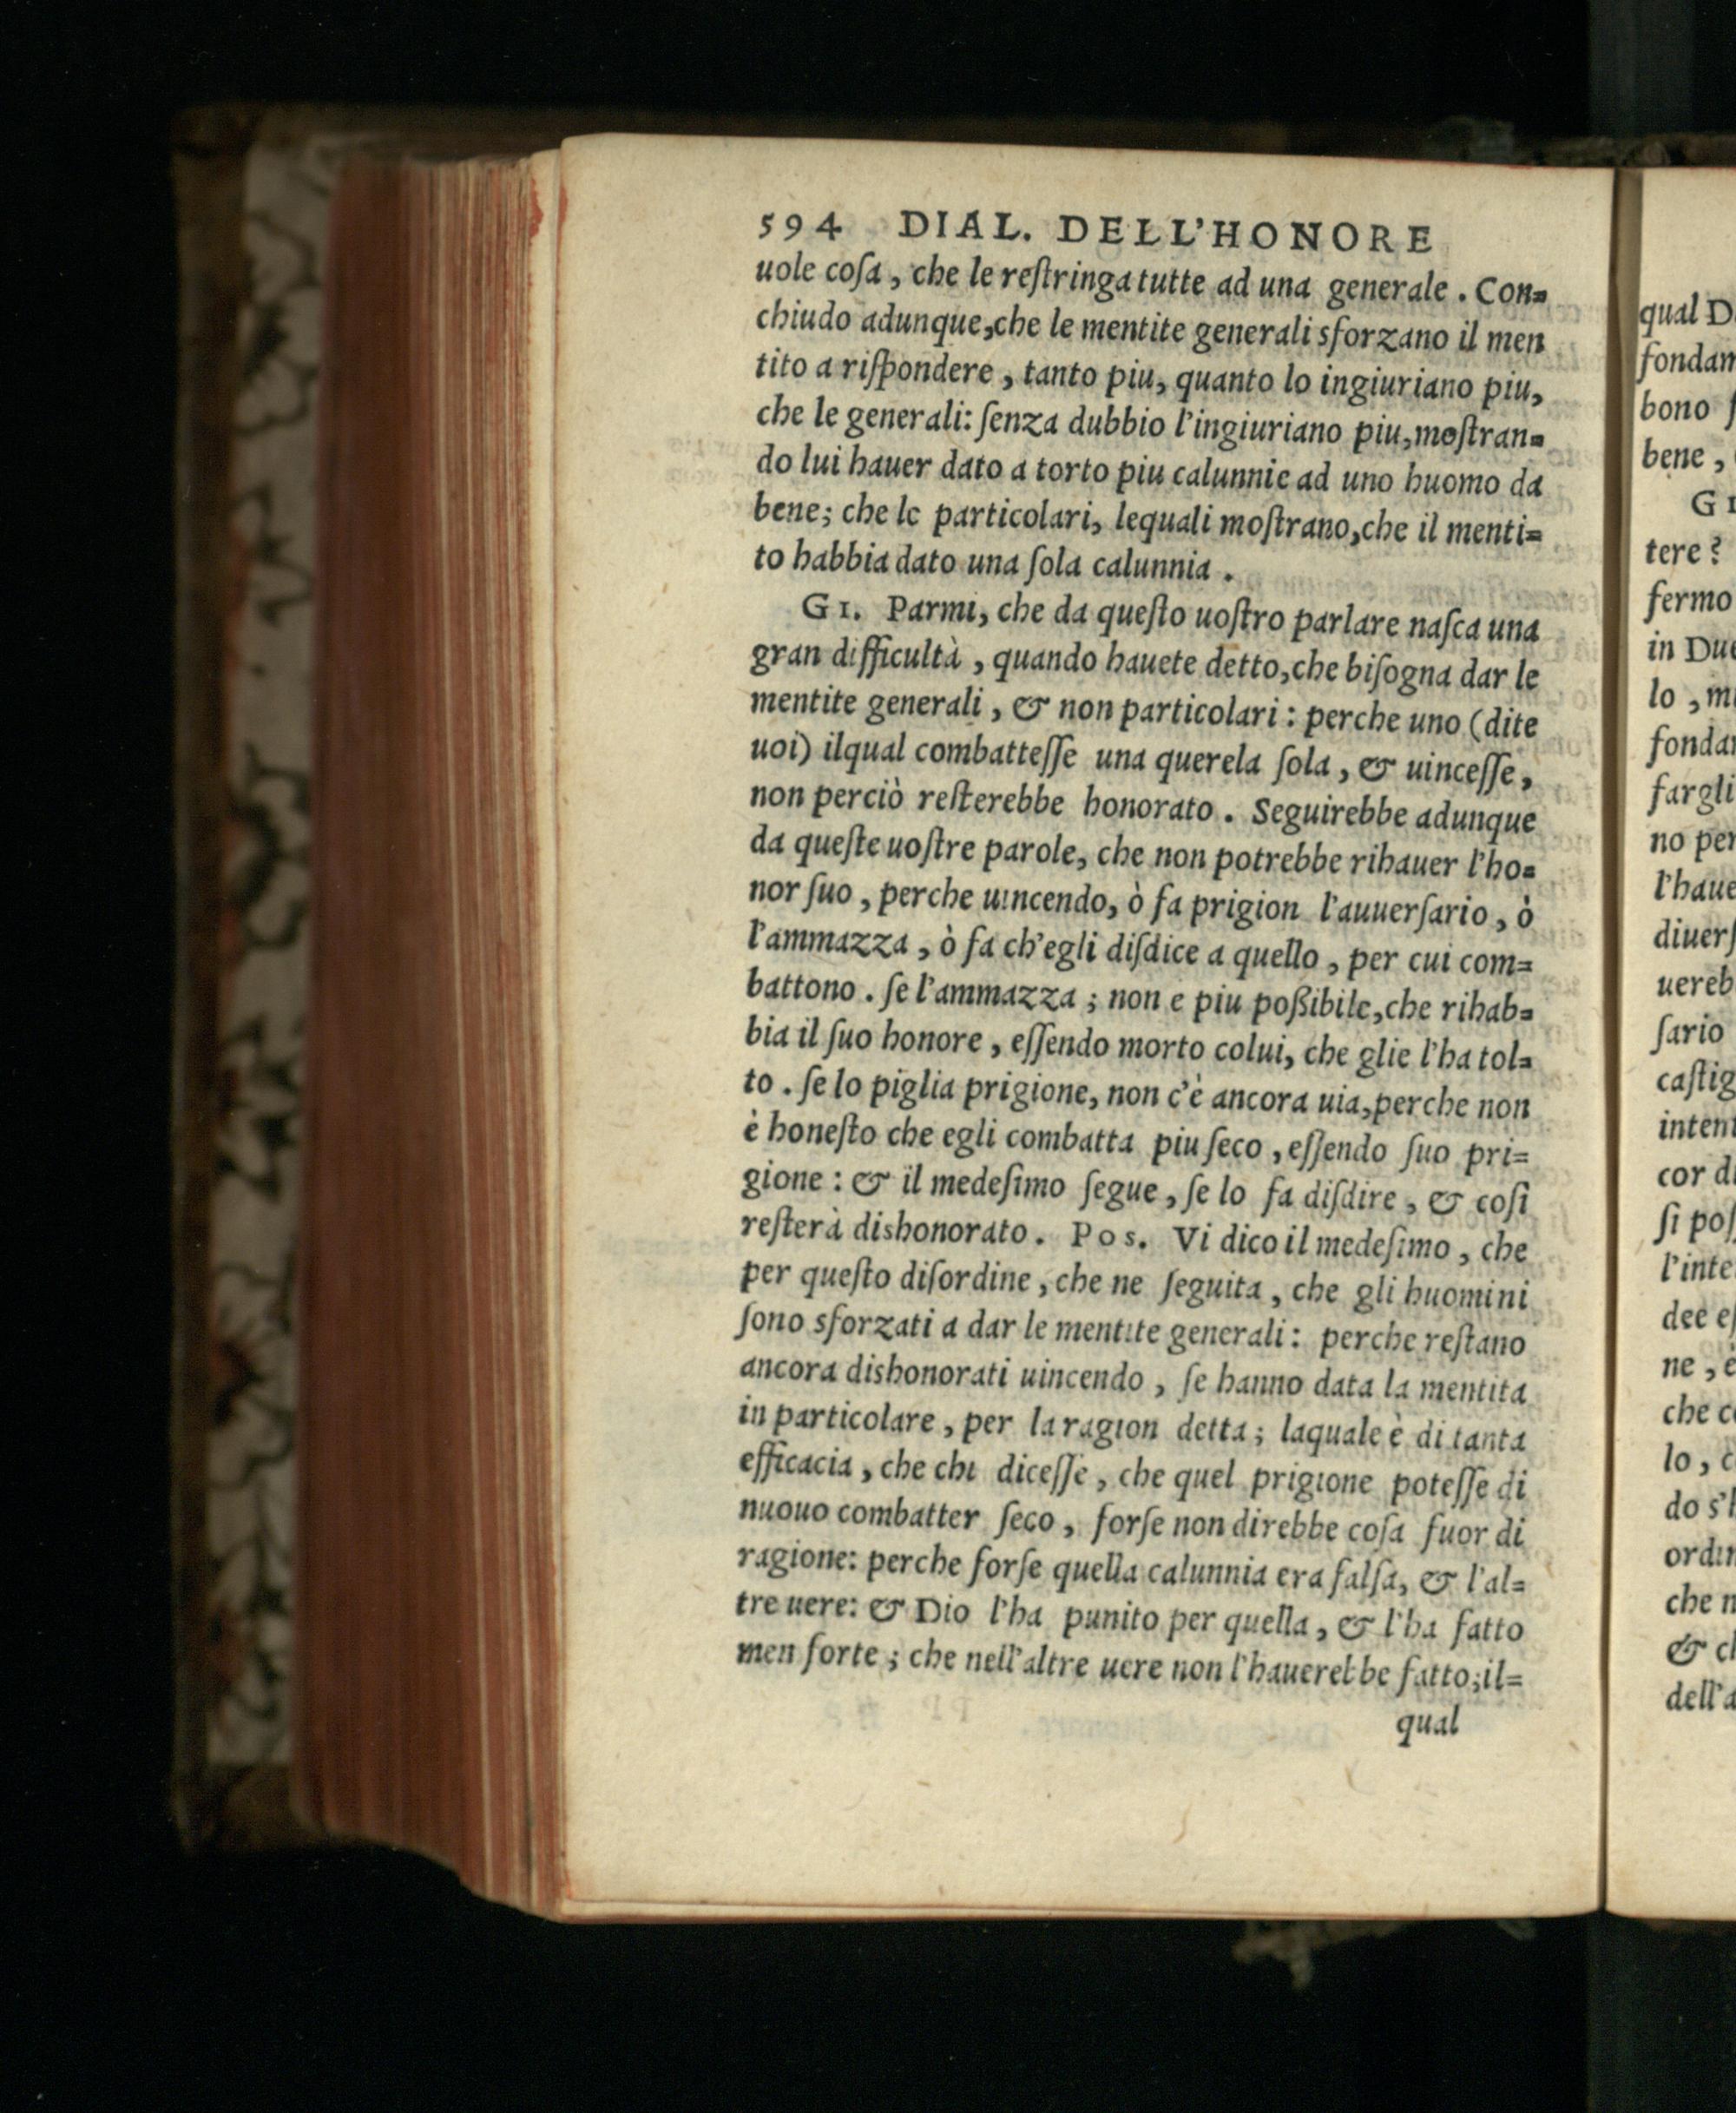 594 DIAL. DELL'HONORE
uole coſa, che le reſtringa tutte ad una generale. Con=
chiudo adunque, che le mentite generali sforzano il men
tito a riſpondere, tanto piu, quanto lo ingiuriano piu,
che le generali: ſenza dubbio l'ingiuriano piu, moſtran=
do lui hauer dato a torto piu calunnie ad uno huomo da
bene; che le particolari, lequali moſtrano, che il menti=
to habbia dato una ſola calunnia.
GI. Parmi, che da queſto uoſtro parlare naſca una
gran difficultà, quando hauete detto, che biſogna dar le
mentite generali, & non particolari: perche uno (dite
uoi) ilqual combatteſſe una querela ſola, & uinceſſe,
non perciò reſterebbe honorato. Seguirebbe adunque
da queſte uoſtre parole, che non potrebbe rihauer l'ho=
nor ſuo, perche uincendo, ò fa prigion l'auuerſario, ò
l'ammazza, ò fa ch'egli diſdice a quello, per cui com=
battono. ſe l'ammazza; non e piu poßibile, che rihab=
bia il ſuo honore, eſſendo morto colui, che glie l'ha tol=
to. ſe lo piglia prigione, non c'è ancora uia, perche non
è honeſto che egli combatta piu ſeco, eſſendo ſuo pri=
gione: & il medeſimo ſegue, ſe lo fa diſdire, & coſi
reſterà dishonorato. POS. Vi dico il medeſimo, che
per queſto diſordine, che ne ſeguita, che gli huomini
ſono sforzati a dar le mentite generali: perche reſtano
ancora dishonorati uincendo, ſe hanno data la mentita
in particolare, per la ragion detta; laquale è di tanta
efficacia, che chi diceſſe, che quel prigione poteſſe di
nuouo combatter ſeco, forſe non direbbe coſa fuor di
ragione: perche forſe quella calunnia era falſa, & l'al=
tre uere: & Dio l'ha punito per quella, & l'ha fatto
men forte; che nell'altre uere non l'hauerebbe fatto; il=
qual
qual D
fondam
bono ſ
bene,
GI
tere?
fermo
in Due
lo, m
fonda
fargli
no per
l'haue
diuerſ
uereb
ſario
caſtig
inten
cor d
ſi poſ
l'inte
dee eſ
ne, è
che c
lo, c
do s'
ordin
che n
& ch
dell'a